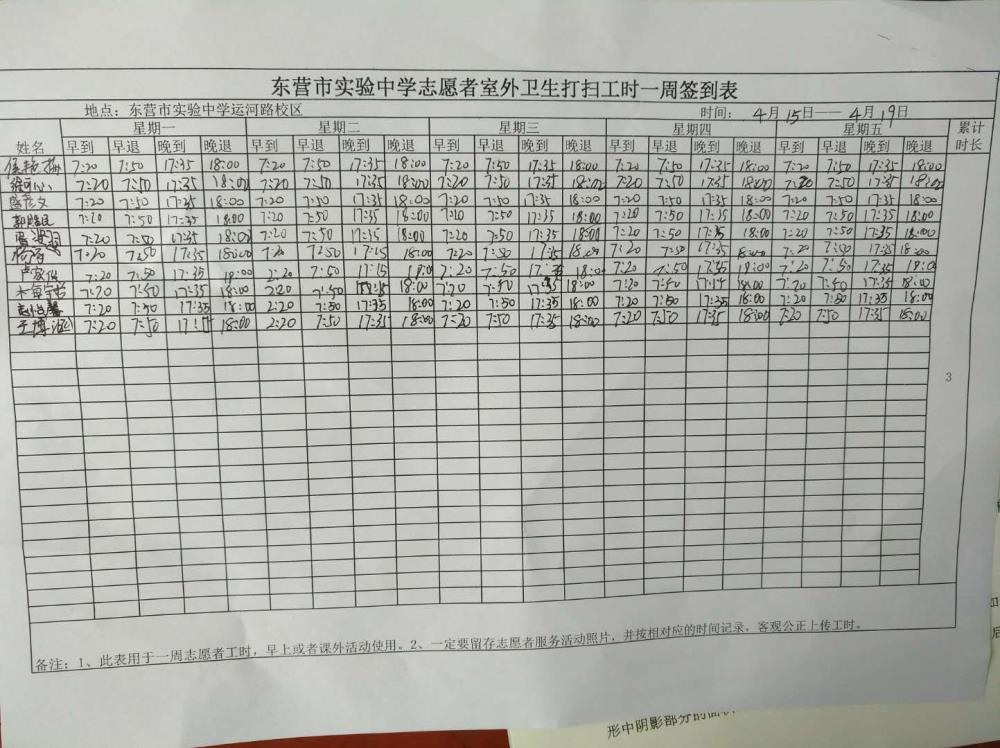 东营市实验中学志愿者室外卫生打扫工时一周签到表
地点：东营市实验中学运河路校区 时间：4月15日——4月19日
姓名 星期一 星期二 星期三 星期四 星期五 累计时长
早到 早退 晚到 晚退 早到 早退 晚到 晚退 早到 早退 晚到 晚退 早到 早退 晚到 晚退 早到 早退 晚到 晚退
7:20 7:50 17:35 18:00 7:20 7:50 17:35 18:00 7:20 7:50 17:35 18:00 7:20 7:50 17:35 18:00 7:20 7:50 17:35 18:00
7:20 7:50 17:35 18:00 7:20 7:50 17:35 18:00 7:20 7:50 17:35 18:00 7:20 7:50 17:35 18:00 7:20 7:50 17:35 18:00
7:20 7:50 17:35 18:00 7:20 7:50 17:35 18:00 7:20 7:50 17:35 18:00 7:20 7:50 17:35 18:00 7:20 7:50 17:35 18:00
7:20 7:50 17:35 18:00 7:20 7:50 17:35 18:00 7:20 7:50 17:35 18:00 7:20 7:50 17:35 18:00 7:20 7:50 17:35 18:00
7:20 7:50 17:35 18:00 7:20 7:50 17:35 18:00 7:20 7:50 17:35 18:00 7:20 7:50 17:35 18:00 7:20 7:50 17:35 18:00
7:20 7:50 17:35 18:00 7:20 7:50 17:15 18:00 7:20 7:50 17:35 18:00 7:20 7:50 17:35 18:00 7:20 7:50 17:35 18:00
7:20 7:50 17:35 18:00 2:20 7:50 17:15 18:00 7:20 7:50 17:35 18:00 7:20 7:50 17:35 18:00 7:20 7:50 17:35 18:00
7:20 7:50 17:35 18:00 2:20 7:50 18:00 7:20 7:50 17:35 18:00 7:20 7:50 18:00 7:20 7:50 17:35 18:00
7:20 7:50 17:35 18:00 2:20 7:50 17:35 18:00 7:20 7:50 17:35 18:00 7:20 7:50 17:35 18:00 7:20 7:50 17:35 18:00
于博涵 7:20 7:50 18:00 2:20 7:50 17:35 18:00 7:20 7:50 17:35 18:00 7:20 7:50 17:35 18:00 7:20 7:50 17:35 18:00
3
备注：1、此表用于一周志愿者工时，早上或者课外活动使用。2、一定要留存志愿者服务活动照片，并按相对应的时间记录，客观公正上传工时。
如
后
形中阴影部分的面积